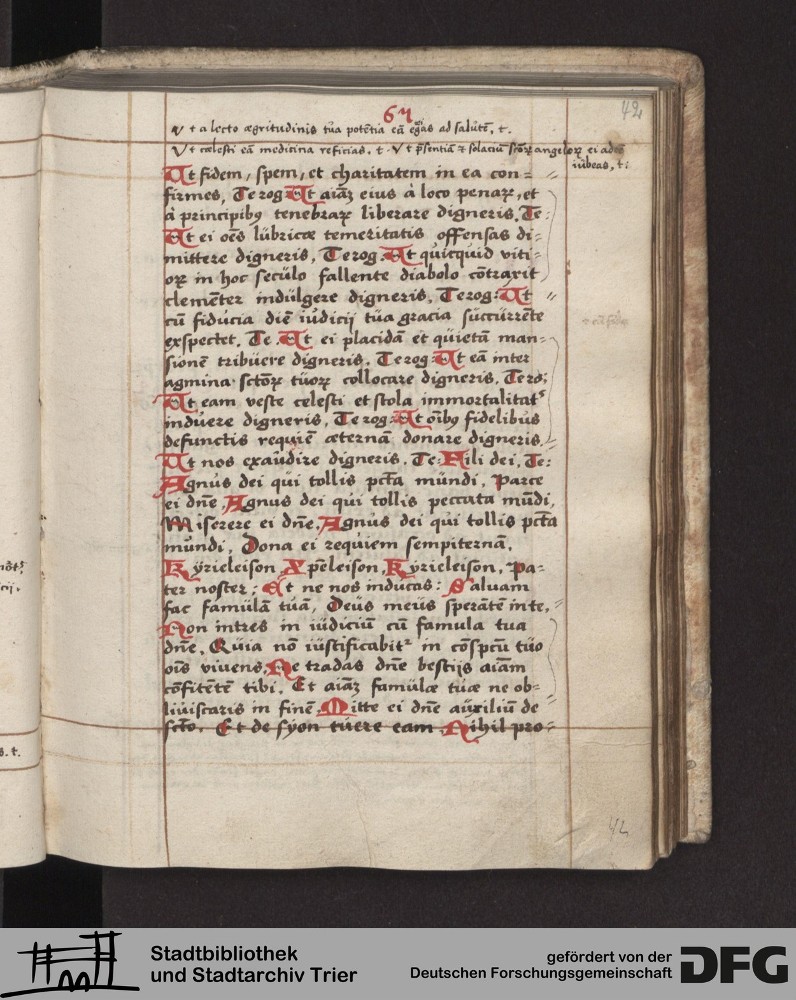 42
67
Vt a lecto ægritudinis tua potētia eā erigas ad salutē, t.
Vt cœlesti eā medicina reficias. t. Vt p̄sentiā & solaciū sctoꝝ angeloꝝ ei adeē
iubeas, t:
Ut fidem, spem, et charitatem in ea con=
firmes, Te rog: Ut aīaꝫ eius à loco penaꝝ, et
à principibꝰ tenebraꝝ liberare digneris, Te:
Ut ei oēs lubricæ temeritatis offensas di=
mittere digneris, Te rog: Ut quicquid viti=
oꝝ in hoc seculo fallente diabolo cōtraxit
clemēter indulgere digneris, Te rog: Ut
cū fiducia diē iudicij tua gracia succurrēte
exspectet. Te. Ut ei placidā et quietā man=
sionē tribuere digneris. Te rog: Ut eā inter
agmina sctoꝝ tuoꝝ collocare digneris. Te ro:
Ut eam veste celesti et stola immortalitatꝭ
induere digneris, Te rog: Ut oībꝰ fidelibus
defunctis requiē æternā donare digneris.
Ut nos exaudire digneris. Te: Fili dei, Te:
Agnus dei qui tollis pctā mundi, Parce
ei dn̄e, Agnus dei qui tollis peccata mūdi,
Miserere ei dn̄e, Agnus dei qui tollis pctā
mundi, Dona ei requiem sempiternā,
Kyrieleison Xp̄eleison, Kyrieleison, Pa=
ter noster; Et ne nos inducas: Saluam
fac famulā tuā, Deus meus sperātē in te,
Non intres in iudiciū cū famula tua
dn̄e, Quia nō iustificabitᷣ in cōspectu tuo
oīs viuens, Ne tradas dn̄e bestijs aīam
cōfitētē tibi. Et aīaꝫ famulæ tuæ ne ob=
liuiscaris in finē, Mitte ei dn̄e auxiliū de
sctō, Et de syon tuere eam, Nihil pro=
42
Stadtbibliothek
und Stadtarchiv Trier
gefördert von der
Deutschen Forschungsgemeinschaft
DFG